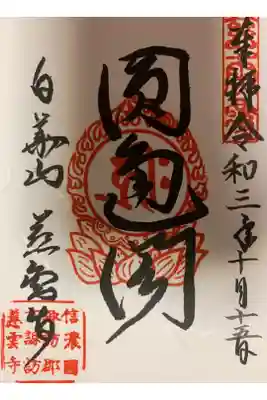 奉拝 令和三年十月十五日
圓通閣
白華山 慈雲寺
信濃國
諏訪郡
慈雲寺